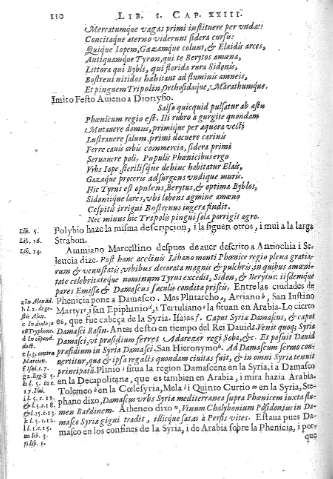 110 LIB. 1. CAP. XXIII.
Mercatumque vagas primi instituere per vndas:
Concitaque aterno viderunt sidera cursu:
Quique Iopem, Gazamque colunt, & Elaidis arces,
Antiquamque Tyron, qui te Berytos amœna,
Littora qui Bybli, qui florida rura Sidonis,
Bostreni nitidos habitant ad fluminis amneis,
Et pinguem Tripolin, Orthosidaque, Marathumque.
Imito Festo Auieno a Dionysio.
Salso quicquid pulsatur ab æstu
Phœnicum regio est. Hi rubro a gurgite quondam
Mutauere domus, primique per æquora vecti
Lustrauere salum, primi docuere carinis
Ferre cauis orbis commercia, sidera primi
Seruauere poli. Populi Phœnicibus ergo
Vrbs Iope, sterilisque dehinc habitatur Elais,
Gazaque præceris adsurgens vndique muris.
Hic Tyrus est opulens, Berytus, & optima Byblos,
Sidoniique lares, vbi labens agmine amæno
Cespitis irrigui Bostrenus iugera findit.
Nec minus hic Tripolis pingui sola porrigit agro.
Lib. 5. Polybio haze la misma descripcion, i la siguen otros, i mui a la larga
Lib. 16. Strabon.
Lib. 14. Ammiano Marcellino despues de auer descrito a Antiochia i Se-
leucia dize. Post hanc acclinis Libano monti Phœnice regio plena gratia-
rum & venustatis vrbibus decorata magnis & pulchris, in quibus amœni-
tate celebritateque nominum Tyrus excedit, Sidon, & Berytus: iisdemque
pares Emissa & Damascus sæculis condita priscis. Entre las ciudades de
Phenicia pone a Damasco. Mas Plutarcho, Arriano, San Iustino
Martyr, i San Epiphanio, i Tertuliano la situan en Arabia. Lo cierto
es, que fue cabeça de la Syria. Isaias. Caput Syriæ Damascus, & caput
Damasci Rasin. Antes desto en tiempo del Rei Dauid. Venit quoq; Syria
Damasci, vt præsidium ferret Adarezer regi Soba, &c. Et posuit Dauid
præsidium in Syria Damasci. San Hieronymo. Ad Damascum sermo con-
uertitur, quæ & ipsa regalis quondam ciuitas fuit, & in omni Syria tenuit
principatũ. Plinio situa la region Damascena en la Syria, i a Damasco
en la Decapolitana, que es tambien en Arabia, i mira hazia Arabia.
Tolemeo en la Cœlesyria, Mela i Quinto Curtio en la Syria, Ste-
phano dize, Damascus vrbs Syriæ mediterranea supra Phœnicem iuxta flu-
men Bardinem. Atheneo dixo, Vinum Chalybonium Posidonius in Da-
masco Syriæ gigni tradit, illicque satas à Persis vites. Estaua pues Da-
masco en los confines de la Syria, i de Arabia sobre la Phenicia, i por-
que